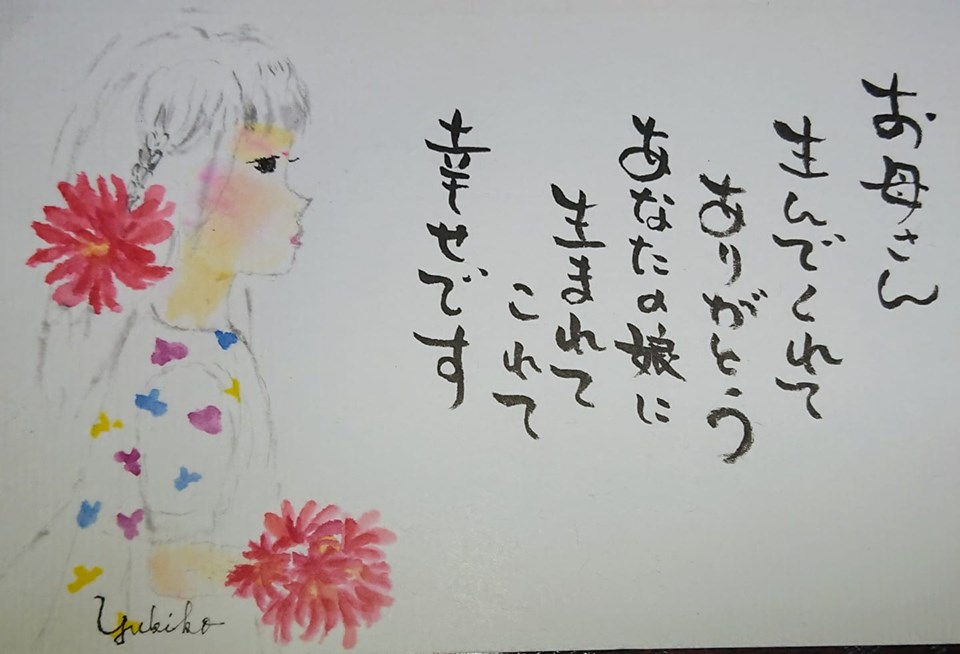 お母さん
生んでくれて
ありがとう
あなたの娘に
生まれて
これて
幸せです
Yukiko